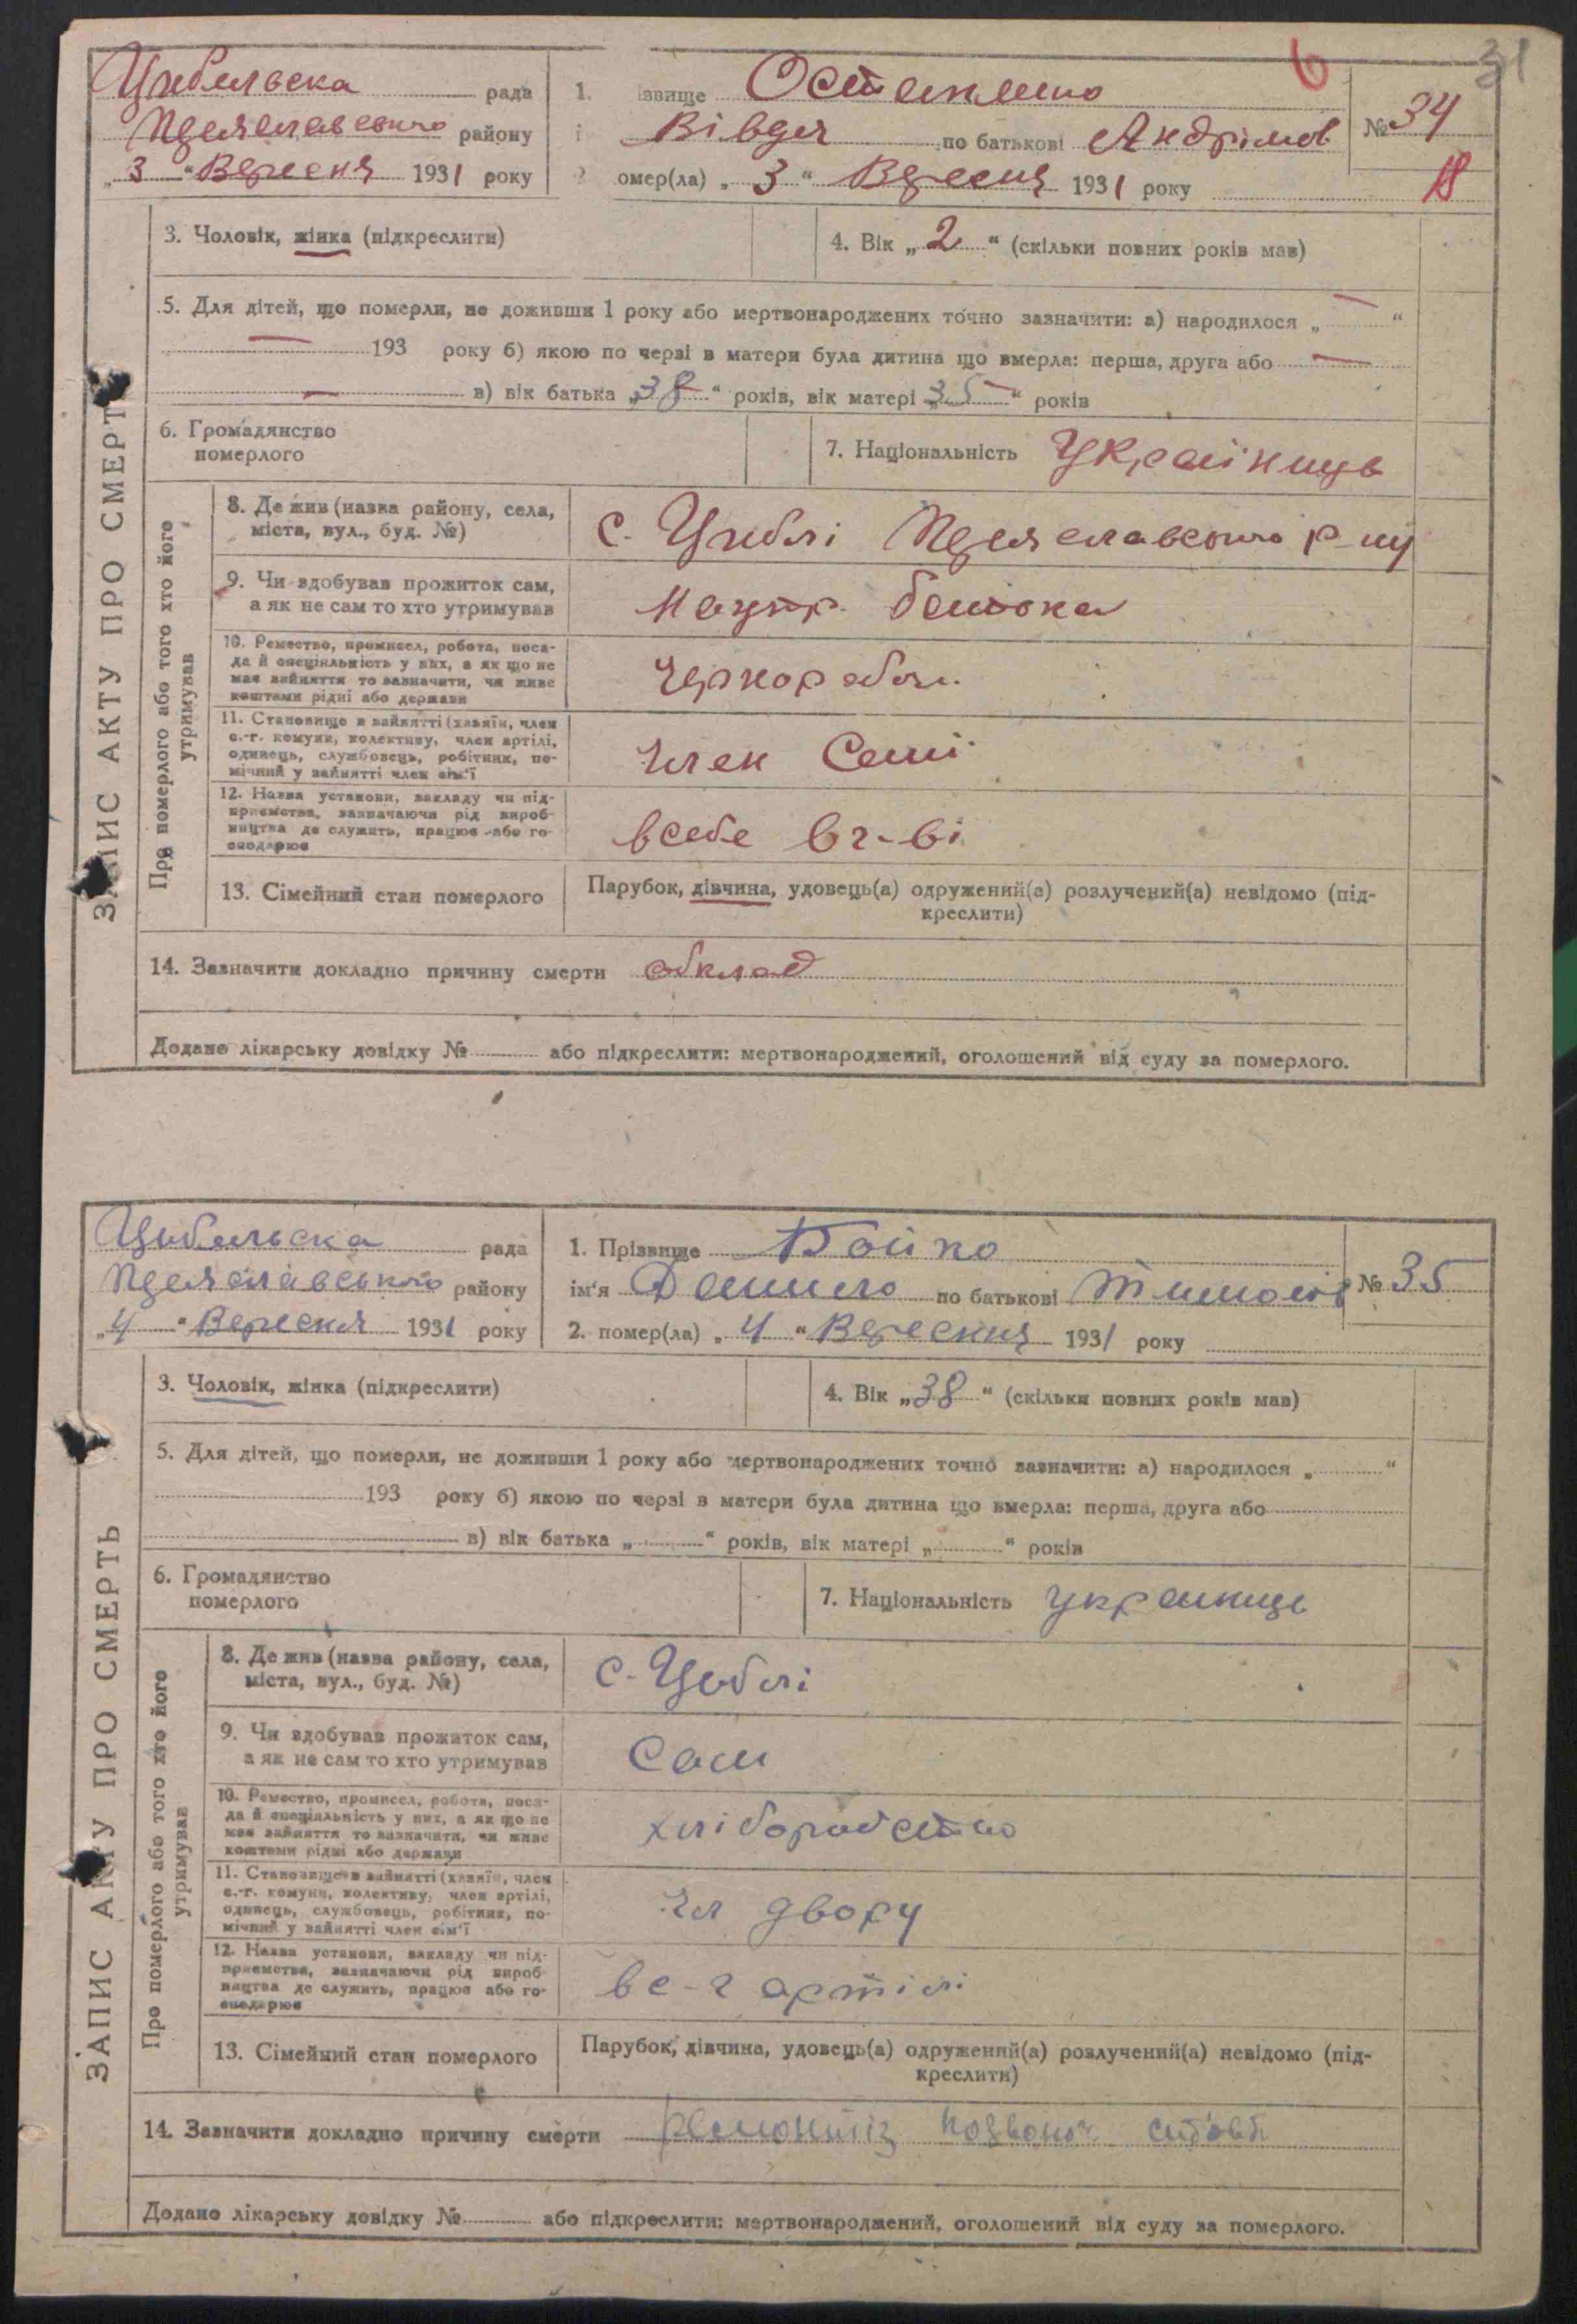 6 31
Цибльвска рада
району
„3“ Вересня 1931 року
1. ізвище Остапенко
Вівдя по батькові Андріїов
омер(ла) „3“ Вересня 1931 року
№ 34
18
3. Чоловік, жінка (підкреслити)
4. Вік „2“ (скільки повних років мав)
5. Для дітей, що померли, не доживши 1 року або мертвонароджених точно зазначити: а) народилося „—“
— 193 року б) якою по черзі в матери була дитина що вмерла: перша, друга або —
— в) вік батька „38“ років, вік матері „35“ років
6. Громадянство
померлого
7. Національність Українць
ЗАПИС АКТУ ПРО СМЕРТЬ
Про померлого або того хто його
утримував
8. Де жив (назва району, села,
міста, вул., буд. №)
с. Циблі Переяславського р-ну
9. Чи здобував прожиток сам,
а як не сам то хто утримував
батька
10. Ремество, промисел, робота, поса-
да й спеціяльність у них, а як що не
має зайняття то зазначити, чи живе
коштами рідні або держави
Чернороб
11. Становище в зайнятті (хазяїн, член
с.-г. комуни, колективу, член артілі,
одинець, службовець, робітник, по-
мічний у зайнятті член сім'ї
член Семї
12. Назва установи, закладу чи під-
приємства, зазначаючи рід вироб-
ництва де служить, працює або го-
сподарює
всебе вг-ві
13. Сімейний стан померлого
Парубок, дівчина, удовець(а) одружений(а) розлучений(а) невідомо (під-
креслити)
14. Зазначити докладно причину смерти обклад
Додано лікарську довідку № або підкреслити: мертвонароджений, оголошений від суду за померлого.
Цибльська рада
Переяславського району
„4“ Вересня 1931 року
1. Прізвище Бойко
ім'я Данило по батькові Тимофів
2. помер(ла) „4“ Вересня 1931 року
№ 35
3. Чоловік, жінка (підкреслити)
4. Вік „38“ (скільки повних років мав)
5. Для дітей, що померли, не доживши 1 року або мертвонароджених точно зазначити: а) народилося „ “
193 року б) якою по черзі в матери була дитина що вмерла: перша, друга або
в) вік батька „ “ років, вік матері „ “ років
6. Громадянство
померлого
7. Національність українць
ЗАПИС АКТУ ПРО СМЕРТЬ
Про померлого або того хто його
утримував
8. Де жив (назва району, села,
міста, вул., буд. №)
с. Циблі
9. Чи здобував прожиток сам,
а як не сам то хто утримував
Сам
10. Ремество, промисел, робота, поса-
да й спеціяльність у них, а як що не
має зайняття то зазначити, чи живе
коштами рідні або держави
хліборобство
11. Становище в зайнятті (хазяїн, член
с.-г. комуни, колективу, член артілі,
одинець, службовець, робітник, по-
мічний у зайнятті член сім'ї
чл двору
12. Назва установи, закладу чи під-
приємства, зазначаючи рід вироб-
ництва де служить, працює або го-
сподарює
в с-г артілі
13. Сімейний стан померлого
Парубок, дівчина, удовець(а) одружений(а) розлучений(а) невідомо (під-
креслити)
14. Зазначити докладно причину смерти
Додано лікарську довідку № або підкреслити: мертвонароджений, оголошений від суду за померлого.